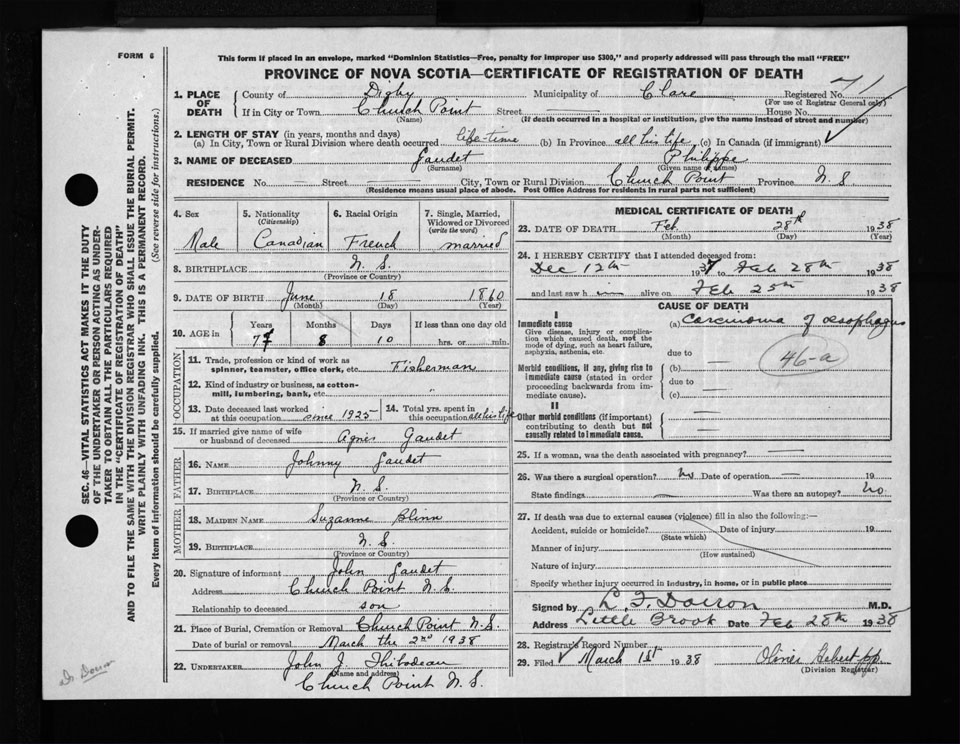 FORM 6
This form if placed in an envelope, marked "Dominion Statistics—Free, penalty for improper use $300," and properly addressed will pass through the mail "FREE"
PROVINCE OF NOVA SCOTIA—CERTIFICATE OF REGISTRATION OF DEATH
71
1. PLACE OF DEATH County of Digby Municipality of Clare Registered No.
(For use of Registrar General only)
If in City or Town Church Point Street House No.
(Name) (If death occurred in a hospital or institution, give the name instead of street and number)
2. LENGTH OF STAY (in years, months and days)
(a) In City, Town or Rural Division where death occurred life-time (b) In Province all his life (c) In Canada (if immigrant)
3. NAME OF DECEASED Gaudet Philippe
(Surname) (Given name or names)
RESIDENCE No. — Street — City, Town or Rural Division Church Point Province N.S
(Residence means usual place of abode. Post Office Address for residents in rural parts not sufficient)
4. Sex 5. Nationality (Citizenship) 6. Racial Origin 7. Single, Married, Widowed or Divorced (write the word)
Male Canadian French married
8. BIRTHPLACE N.S.
(Province or Country)
9. DATE OF BIRTH June 18 1860
(Month) (Day) (Year)
10. AGE in Years Months Days If less than one day old
77 8 10 hrs. or min.
OCCUPATION
11. Trade, profession or kind of work as spinner, teamster, office clerk, etc. Fisherman
12. Kind of industry or business, as cotton-mill, lumbering, bank, etc. "
13. Date deceased last worked at this occupation since 1925 14. Total yrs. spent in this occupation all his life
15. If married give name of wife or husband of deceased Agnes Gaudet
FATHER
16. NAME Johnny Gaudet
17. BIRTHPLACE N.S.
(Province or Country)
MOTHER
18. MAIDEN NAME Suzanne Blinn
19. BIRTHPLACE N.S.
(Province or Country)
20. Signature of informant John Gaudet
Address Church Point N.S.
Relationship to deceased son
21. Place of Burial, Cremation or Removal Church Point N.S.
Date of burial or removal March the 2nd 1938
22. UNDERTAKER John J. Thibodeau
(Name and address)
Church Point N.S.
MEDICAL CERTIFICATE OF DEATH
23. DATE OF DEATH Feb. 28th 1938
(Month) (Day) (Year)
24. I HEREBY CERTIFY that I attended deceased from:
Dec 12th 1937 to Feb 28th 1938
and last saw him alive on Feb 25th 1938
CAUSE OF DEATH
I
Immediate cause (a) Carcinoma of oesophagus
Give disease, injury or complication which caused death, not the mode of dying, such as heart failure, asphyxia, asthenia, etc.
due to
46-a
Morbid conditions, if any, giving rise to immediate cause (stated in order proceeding backwards from immediate cause).
(b) —
due to —
(c)
II
Other morbid conditions (if important) contributing to death but not causally related to immediate cause.
25. If a woman, was the death associated with pregnancy? —
26. Was there a surgical operation? No Date of operation — 19
State findings — Was there an autopsy? No.
27. If death was due to external causes (violence) fill in also the following:—
Accident, suicide or homicide? Date of injury 19
(State which)
Manner of injury
(How sustained)
Nature of injury
Specify whether injury occurred in industry, in home, or in public place
Signed by L. F. Doiron M.D.
Address Little Brook Date Feb 28th 1938
28. Registrar's Record Number
29. Filed March 1st 1938 Olivier
(Division Registrar)
SEC. 46—VITAL STATISTICS ACT MAKES IT THE DUTY
OF THE UNDERTAKER OR PERSON ACTING AS UNDER-
TAKER TO OBTAIN ALL THE PARTICULARS REQUIRED
IN THE "CERTIFICATE OF REGISTRATION OF DEATH"
AND TO FILE THE SAME WITH THE DIVISION REGISTRAR WHO SHALL ISSUE THE BURIAL PERMIT.
WRITE PLAINLY WITH UNFADING INK. THIS IS A PERMANENT RECORD.
Every item of information should be carefully supplied. (See reverse side for instructions.)